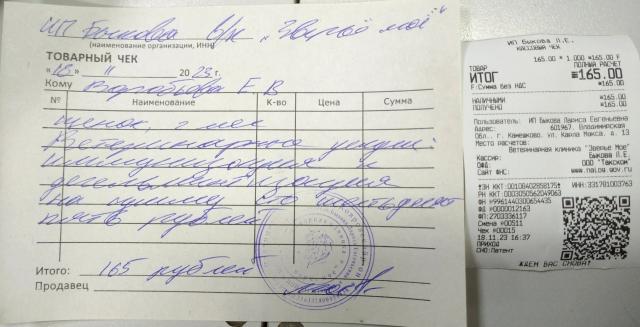 ИП Быкова в/к "Зверьё моё"
(наименование организации, ИНН)
ТОВАРНЫЙ ЧЕК
«18» 11 2023 г.
Кому Воробьёва Е.В
№ Наименование К-во Цена Сумма
щенок, 2 мес
Ветеринарные услуги:
иммунизация и
дегельминтизация
на сумму сто шестьдесят
пять рублей
Итого: 165 рублей
Продавец
ИП Быкова Л.Е.
КАССОВЫЙ ЧЕК
165.00 * 1.000 =165.00
ТОВАР ПОЛНЫЙ РАСЧЕТ
ИТОГ ≡165.00
F:Сумма без НДС ≡165.00
НАЛИЧНЫМИ ≡165.00
ПОЛУЧЕНО ≡165.00
Пользователь: ИП Быкова Лариса Евгеньевна
Адрес: 601967, Владимирская
Обл., г. Камешково, ул. Карла Маркса, д. 13
Место расчетов:
Ветеринарная клиника "Зверье Мое"
Кассир: Быкова Л.Е.
ОФД ООО "Такском"
Сайт ФНС: www.nalog.gov.ru
ЗН ККТ 00106402858175 ИНН: 331701003763
РН ККТ 0003050562049063
ФН №9961440300654435
ФД №0000012163
ФП:2703336117
Смена №00511
Чек №00015
18.11.23 16:37
ПРИХОД
СНО:Патент
ЖДЕМ ВАС СНОВА!